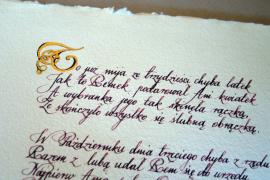 To już mija ze trzydzieści chyba latek
Jak to Benek podarował Ani kwiatek
A wybranka jego tak ścisnęła rączkę,
Że skończyło wszystko się ślubną obrączką.
W Październiku dnia trzeciego chyba z rzędu
Razem z lubą udał Ben się do urzędu
Najpierw